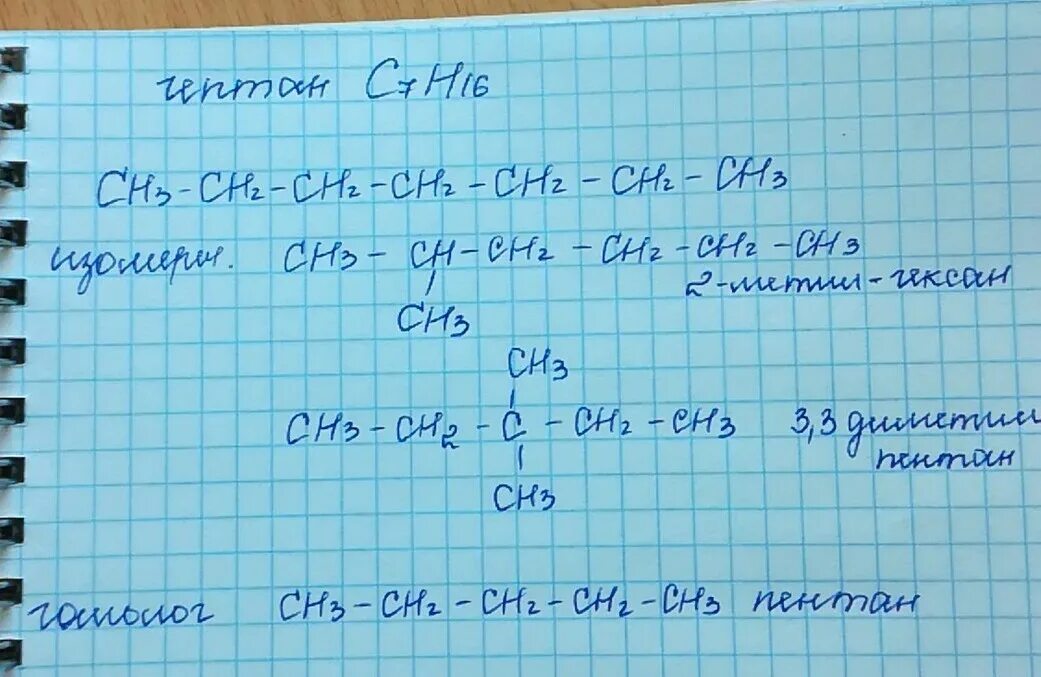 гептан C7H16
CH3-CH2-CH2-CH2-CH2-CH2-CH3
изомеры. CH3-CH-CH2-CH2-CH2-CH3
2-метил-гексан
CH3
CH3
CH3-CH2-C-CH2-CH3 3,3 диметил
пентан
CH3
гомолог CH3-CH2-CH2-CH2-CH3 пентан